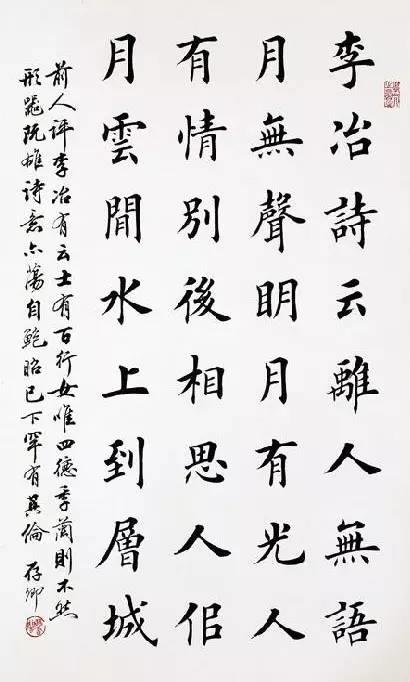 李冶詩云離人無語
月無聲明月有光人
有情別後相思人佀
月雲閒水上到層城
前人評李冶有云士有百行女唯四德季蘭則不然
形氣既雄詩意亦蕩自鮑昭已下罕有其倫 存卿